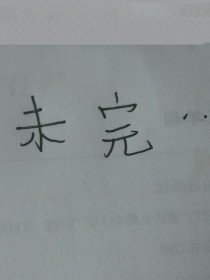 未完··